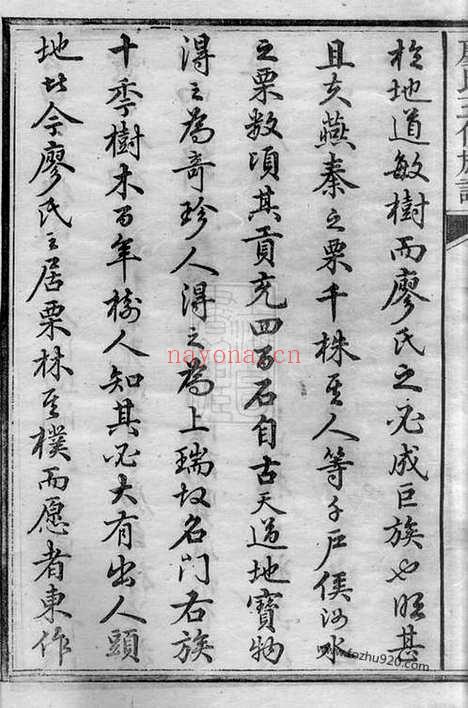 於地道敏樹而廖氏之必成巨族也昭甚
且夫燕秦之栗千株其人等千戶侯汝水
之栗数頃其貢充四百石自古天道地寶物
得之為奇珍人得之為上瑞故名門右族
十季樹木百年樹人知其必大有出人頭
地者今廖氏之居栗林其樸而愿者東作
nayona.cn
www.fozhu920.com